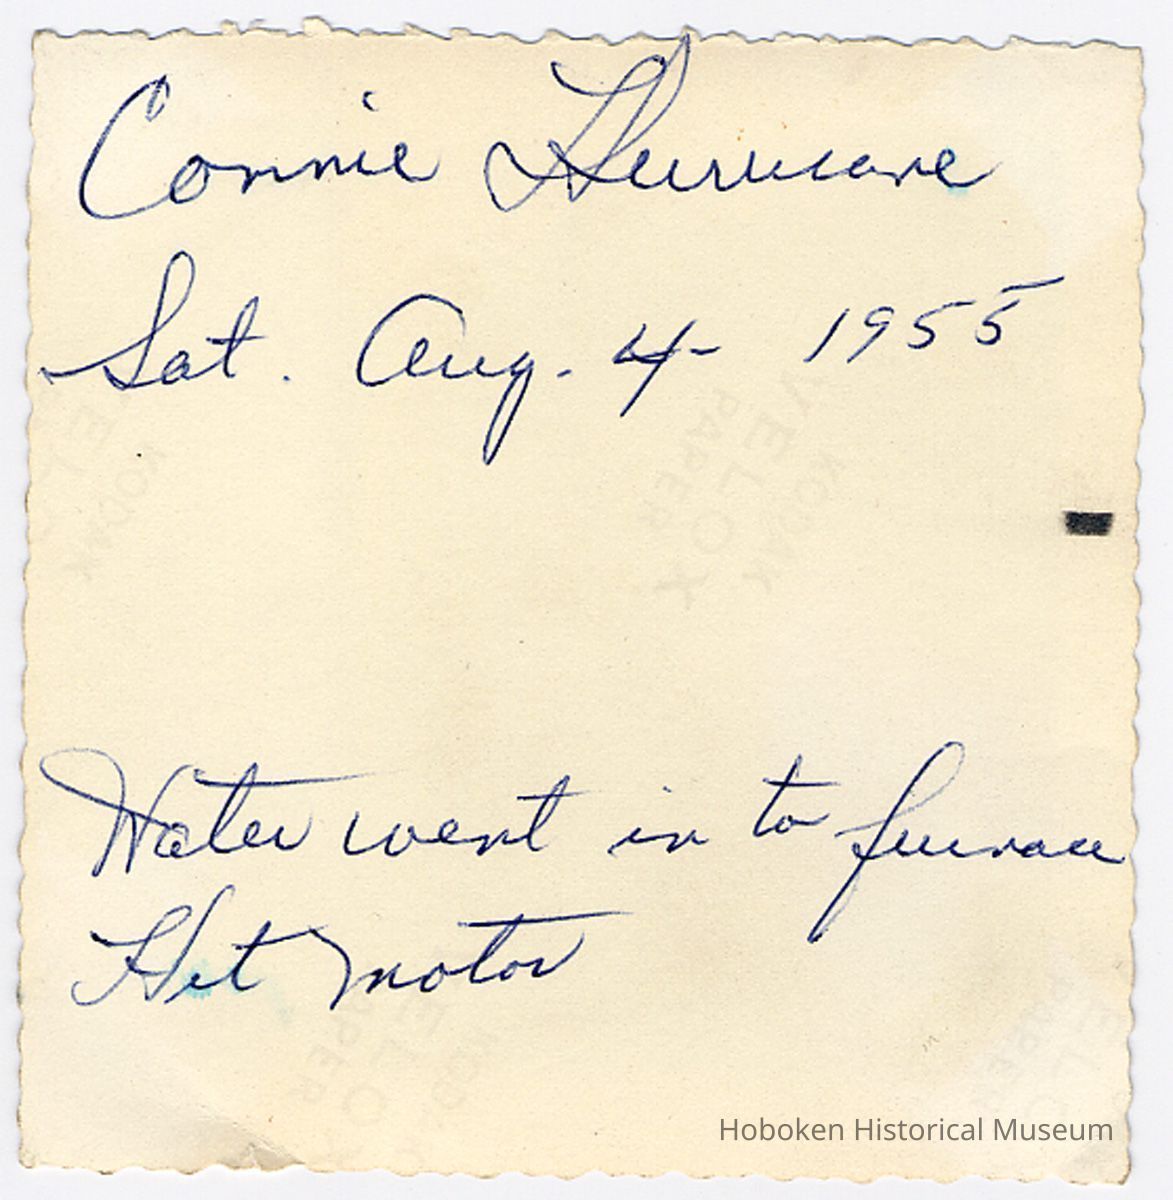 Connie Hurricane
Sat. Aug. 4- 1955
VELOX
KODAK
PAPER
Water went in to furnace
Hit motor
Hoboken Historical Museum